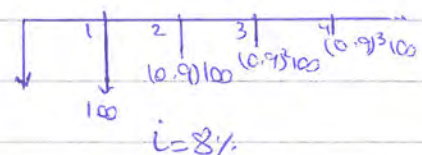 1 2 3 4
100 (0.9)100 (0.9)²100 (0.9)³100
i=8%